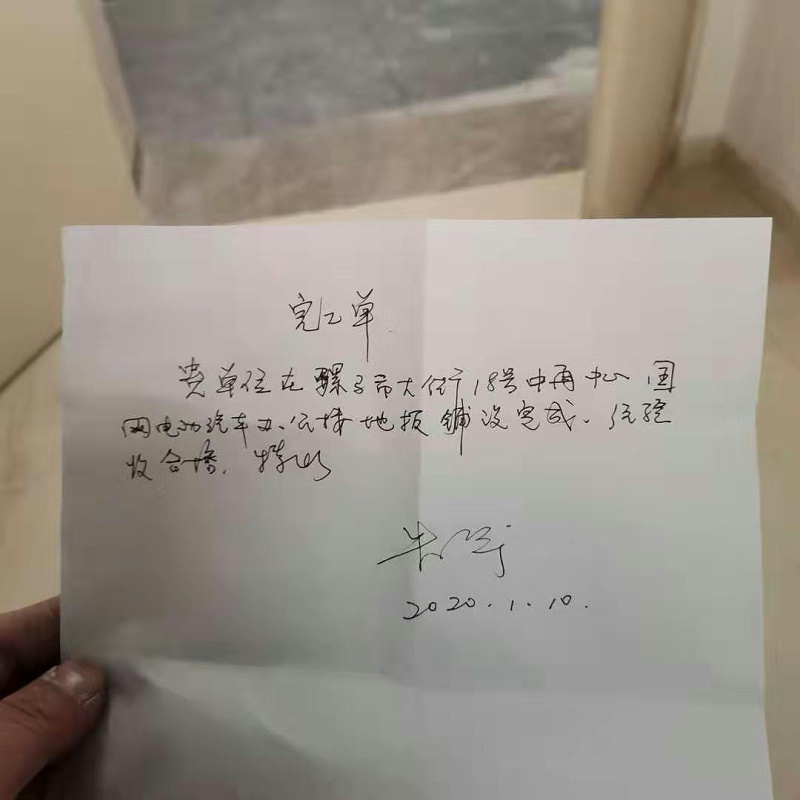 完工单
贵单位在骡子市大街18号中再中心国
网电动汽车办公楼地板铺设完成、经验
收合格.
2020.1.10.